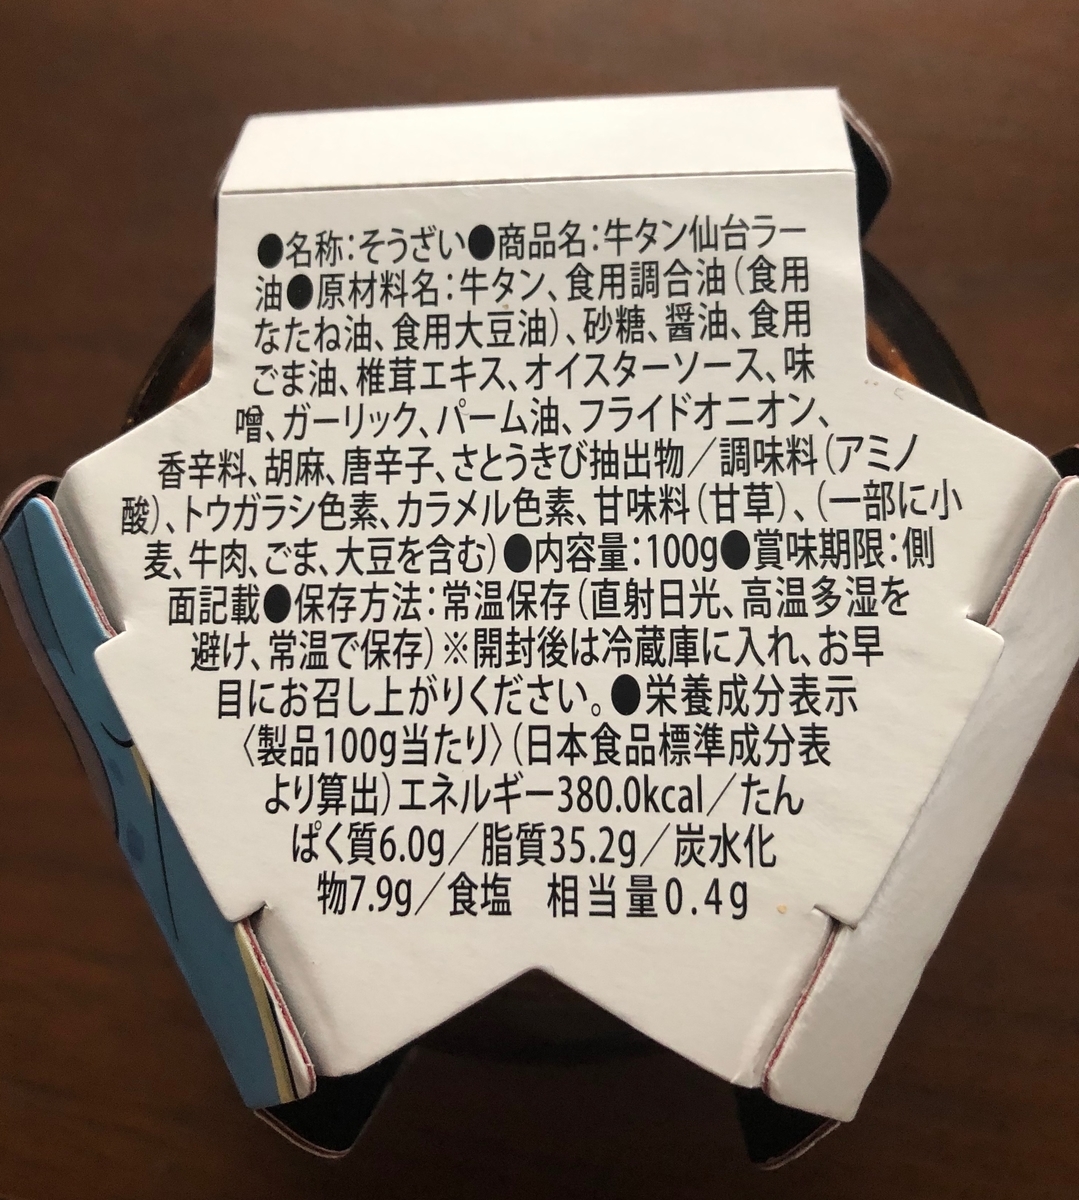 ●名称：そうざい●商品名：牛タン仙台ラー
油●原材料名：牛タン、食用調合油（食用
なたね油、食用大豆油）、砂糖、醤油、食用
ごま油、椎茸エキス、オイスターソース、味
噌、ガーリック、パーム油、フライドオニオン、
香辛料、胡麻、唐辛子、さとうきび抽出物／調味料（アミノ
酸）、トウガラシ色素、カラメル色素、甘味料（甘草）、（一部に小
麦、牛肉、ごま、大豆を含む）●内容量：100g●賞味期限：側
面記載●保存方法：常温保存（直射日光、高温多湿を
避け、常温で保存）※開封後は冷蔵庫に入れ、お早
目にお召し上がりください。●栄養成分表示
〈製品100g当たり〉（日本食品標準成分表
より算出）エネルギー380.0kcal／たん
ぱく質6.0g／脂質35.2g／炭水化
物7.9g／食塩　相当量0.4g